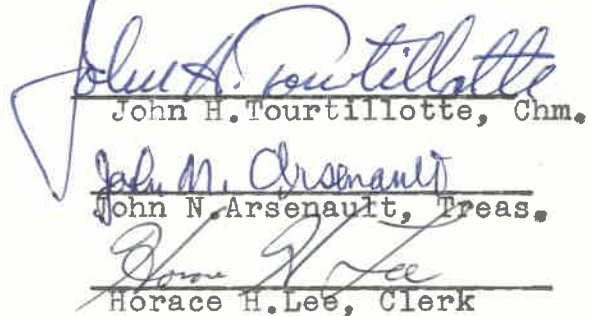 John H. Tourtillotte
John H.Tourtillotte, Chm.
John N. Arsenault
John N.Arsenault, Treas.
Horace H. Lee
Horace H.Lee, Clerk